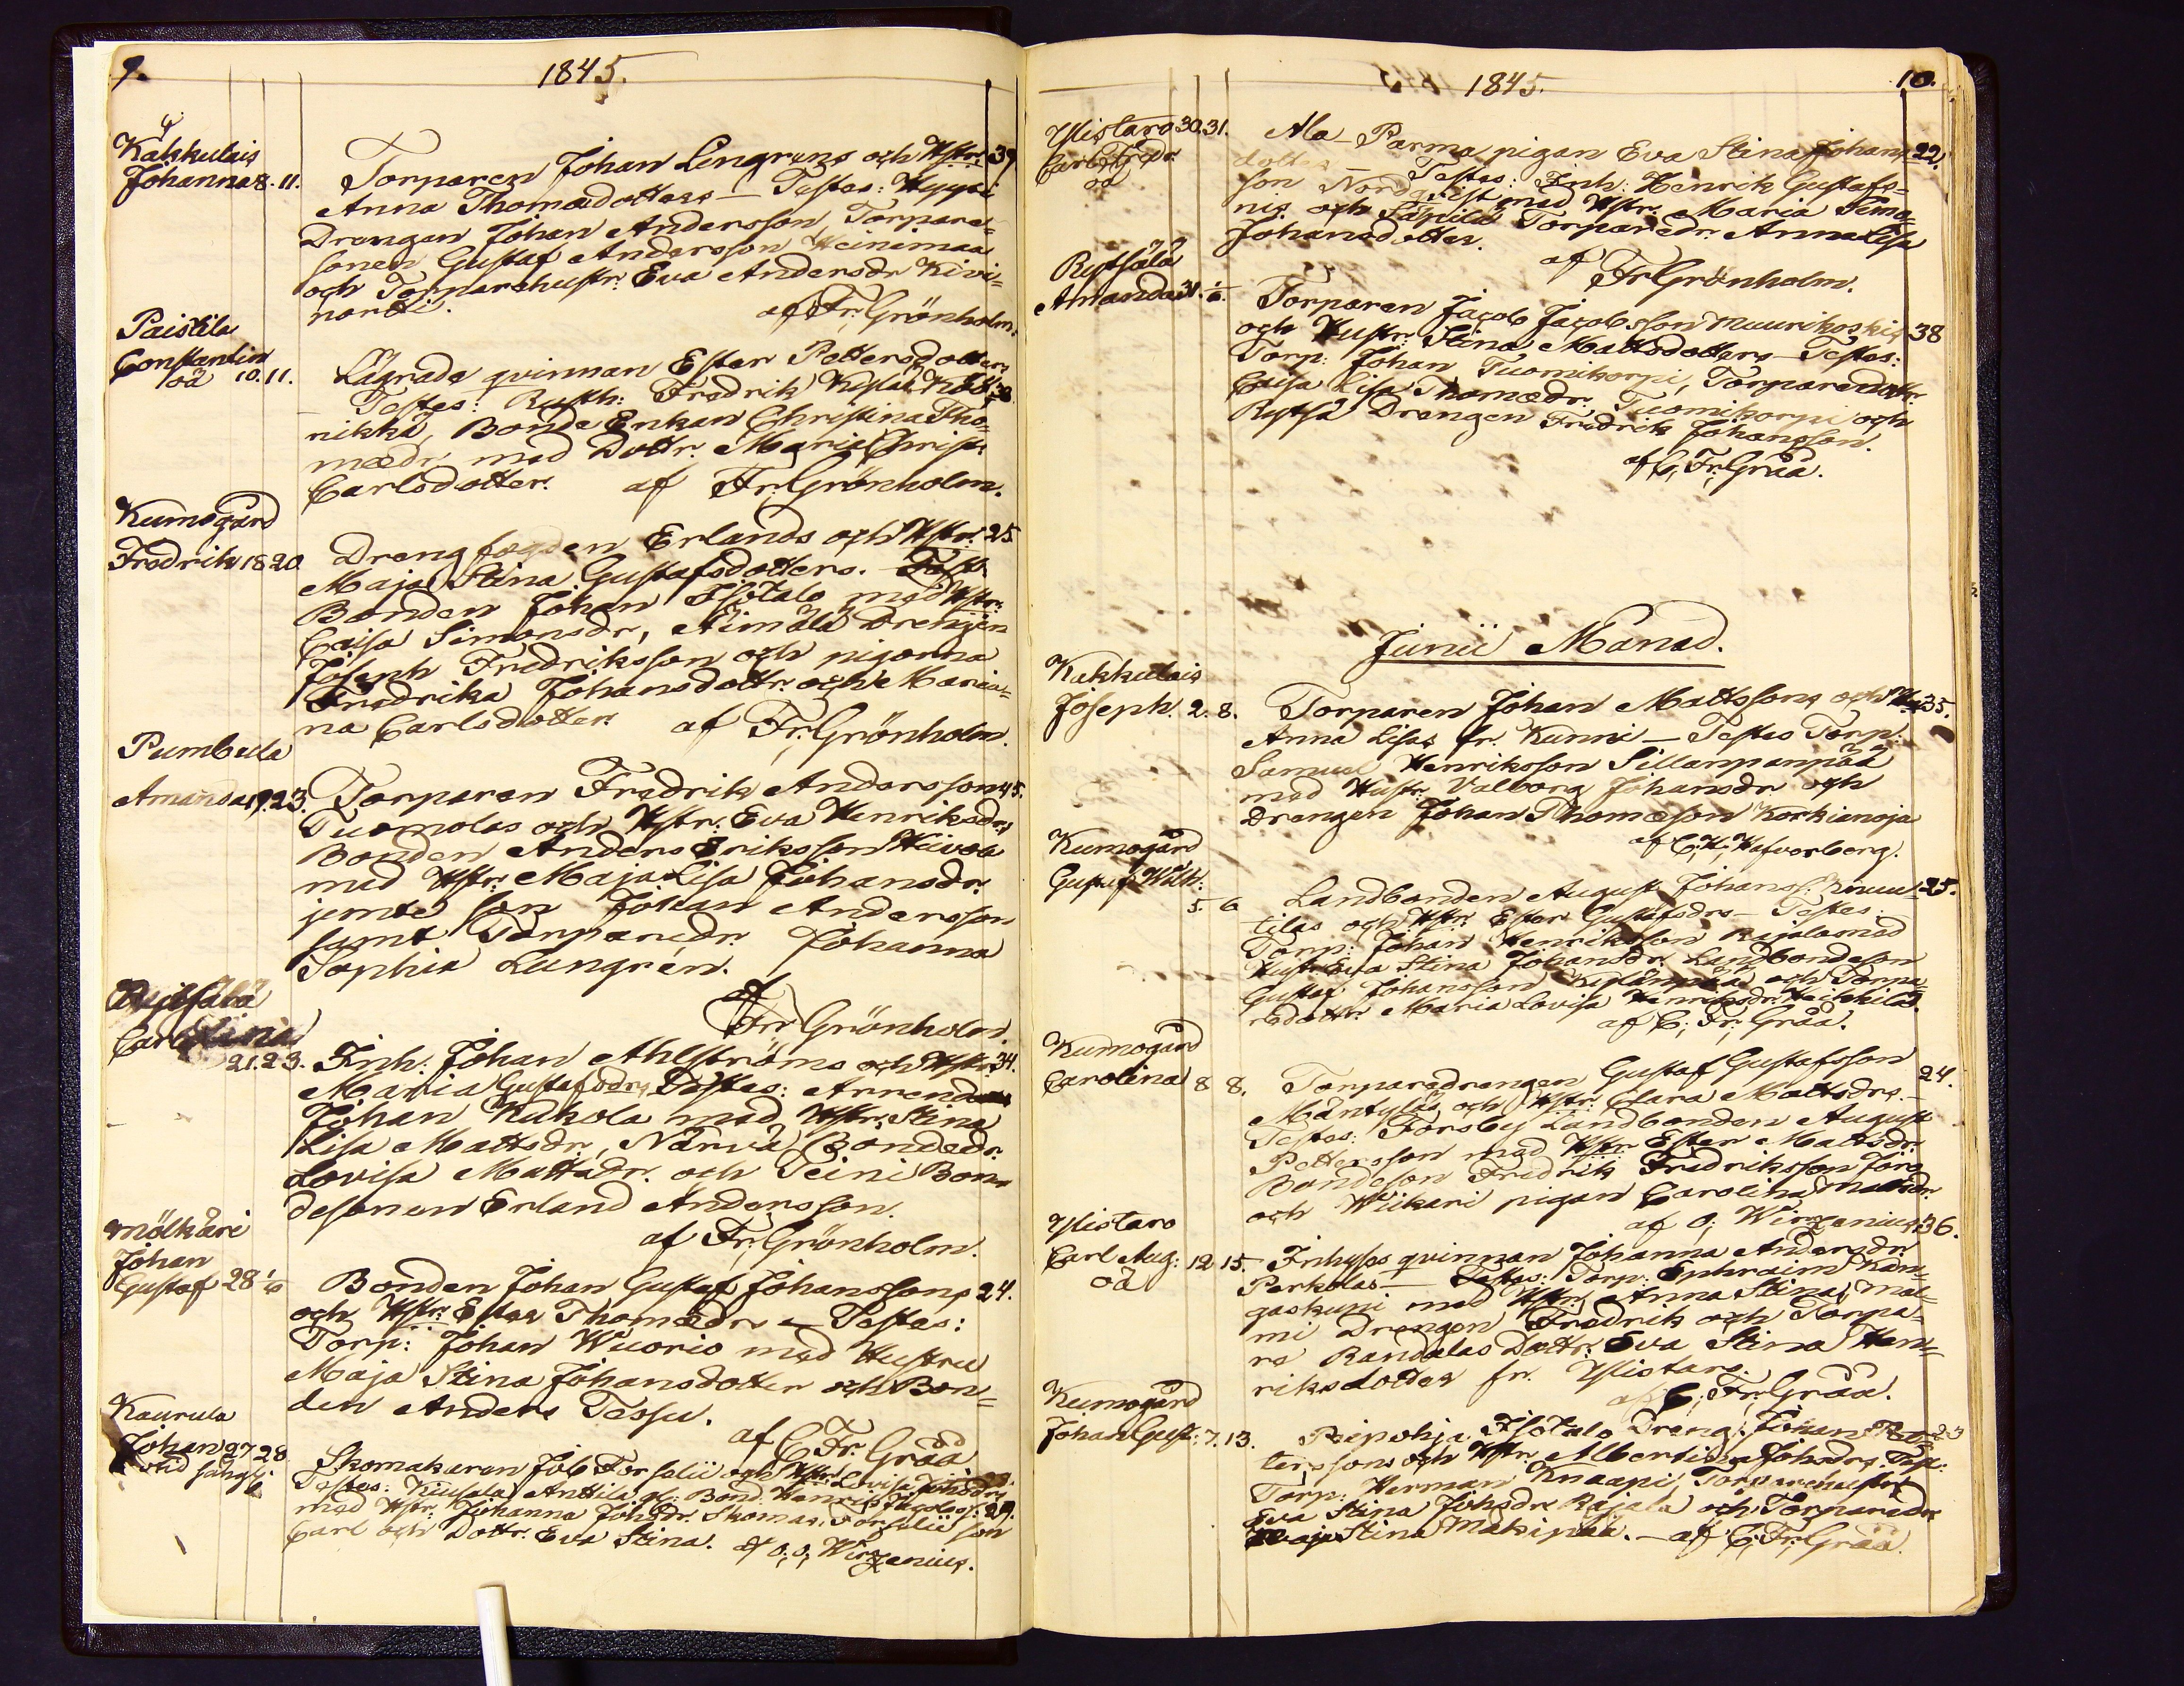 9.
1845.
Kakkulais
Johanna 8. 11.
Torparen Johan Lengrens och Hstr: 39
Anna Thomædotters — Testes: Hyypi
Drengen Johan Andersson Torpare-
sonen Gustaf Andersson Heinimaa
och Torparehustr: Eva Andersdr Kivi=
nortti.
af Fr. Grönholm.
Paistila
Constantin
oä 10. 11.
Lägrade qvinnan Ester Pettersdotters
Testes: Rusth: Fredrik
nikkä, Bonde Enkan Christina Tho=
mædr med Dottr. Maria Christ:
Carlsdotter. af Fr. Grönholm.
Kumogård
Fredrik 18 20
Drengfogden Erlands och Hstr: 25
Maja Stina Gustafsdotters. Test.
Bonden Johan Isotalo med Hstr:
Caisa Simonsdr, Äimälä Drengen
Joseph Fredriksson och pigorna
Fredrika Johansdottr. och Maria=
na Carlsdotter. af Fr. Grönholm.
Pumbula
Amanda 19. 23.
Torparen Fredrik Anderssons 45.
Tuomolas och Hstr: Eva Henriksdrs
Bonden Anders Eriksson
med Hstr: Maja Lisa Johansdr.
jemte son Johan Andersson
samt Torparedr. Johanna
Sophia Lungrén.
af
Fr. Grönholm.
Carolina
21. 23.
Inh: Johan Ahlströms och Hstr: 34.
Maria Gustafsdrs Testes: Arrend
Johan Kukola med Hstr: Stina
Lisa Mattsdr, Närvä Bondedr.
Lovisa Mattsdr. och Peini Bon=
desonen Erland Andersson.
af Fr. Grönholm.
Mölkäri
Johan
Gustaf 28 1/6
Bonden Johan Gustaf Johanssons 24.
och Hstr: Esters Thomædrs — Testes:
Torp: Johan Wuorio med Hustru
Maja Stina Johansdotter och Bon=
den Anders Tessu.
af C. Fr. Gråå
Kaurula
Johan 27 28
Skomakaren Job Forselii och Hstr: Lovisa Johsdrs
Testes: Kiusala Anttila gl: Bond: Henric Jacobss: 29.
med Hstr: Johanna Johsdr. Skomak. Forselii son
Carl och Dottr. Eva Stina. af O. O. Wirzenius.
1845.
10.
Ylistaro 30. 31.
Carl Fredr.
oä
Ala-Parma pigan Eva Stina Johans= 22.
dotters — Testes: Inh: Henrik Gustafs=
son Nordqvist med Hstr: Maria Simo=
nis och Säpilä Torparedr. Anna Lisa
Johansdotter.
af
Fr Grönholm.
Rytsälä
Amanda 31. 1/6.
Torparen Jacob Jacobsson Muurikoskis 38
och Hustr: Stina Mattsdotters — Testes:
Torp: Johan Tuomikorpi, Torparedottr.
Caisa Lisa Thomædr. Tuomikorpi och
Rytsä Drengen Fredrik Johansson.
af C. Fr. Gråå.
Junii Månad.
Kakkulais
Joseph. 2. 8.
Torparen Johan Mattssons och Hu 35.
Anna Lisas fr. Kunni — Testes Torp.
Samuel Henriksson Sillanpanpää
med Hustr: Valborg Johansdr och
Drengen Johan Thomæson Korkianoja
af C. H. Hafverberg.
Kumogård
Gustaf Wilh:
5. 6
Landbonden August Johanss: Knuu= 25.
tilas och Hstr: Ester Gustafsdrs — Testes.
Torp: Johan Henriksson Rajala med
Hustr: Eva Stina Johansdr. Landbondeson
Gustaf Johansson och Torpa=
redottr. Maria Lovisa Henriksdr. Heikkilä.
af C. Fr. Gråå.
Kumogård
Carolina 8 8.
Torparedrengen Gustaf Gustafsson 24.
Mäntyläs och Hstr: Clara Mattsdrs. —
Testes: Forsby Landbonden August
Pettersson med Hstr Ester Mattsdr.
Bondeson Fredrik Fredriksson Jöra
och Wiikari pigan Carolina Mattsdr.
af O. Wirzenius 36.
Ylistaro
Carl Aug: 12 15.
oä
Inhyses qvinnan Johanna Andersdr.
Perkolas — Testes: Torp: Ephraim Kan=
gaskuni med Hstr. Anna Stina, Mal=
mi Drengen Fredrik och Torpa=
re Randalas Dottr: Eva Stina Hen=
riksdotter fr. Ylistaro.
af C. Fr. Gråå.
Kumogård
Johan Gust: 7. 13.
Peipohja Isotalo Dreng. Johan Pet= 23
terssons och Hstr. Albertina Johsdrs. Test:
Torp. Herman Knaapi, Torparehustr
Eva Stina Johsdr Rajala och Torparedr
Maja Stina Mäkipää. — af C. Fr. Gråå.